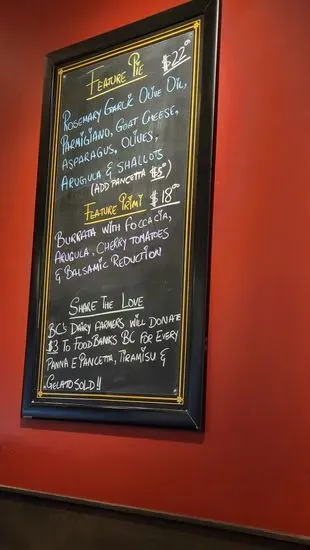 FEATURE PIE $22⁰⁰
ROSEMARY GARLIC OLIVE OIL,
PARMIGIANO, GOAT CHEESE,
ASPARAGUS, OLIVES,
ARUGULA & SHALLOTS
(ADD PANCETTA $5⁰⁰)
FEATURE PRIMI $18⁰⁰
BURRATA WITH FOCCACIA,
ARUGULA, CHERRY TOMATOES
& BALSAMIC REDUCTION
SHARE THE LOVE
BC'S DAIRY FARMERS WILL DONATE
$3 TO FOOD BANKS BC FOR EVERY
PANNA E PANCETTA, TIRAMISU &
GELATO SOLD!!